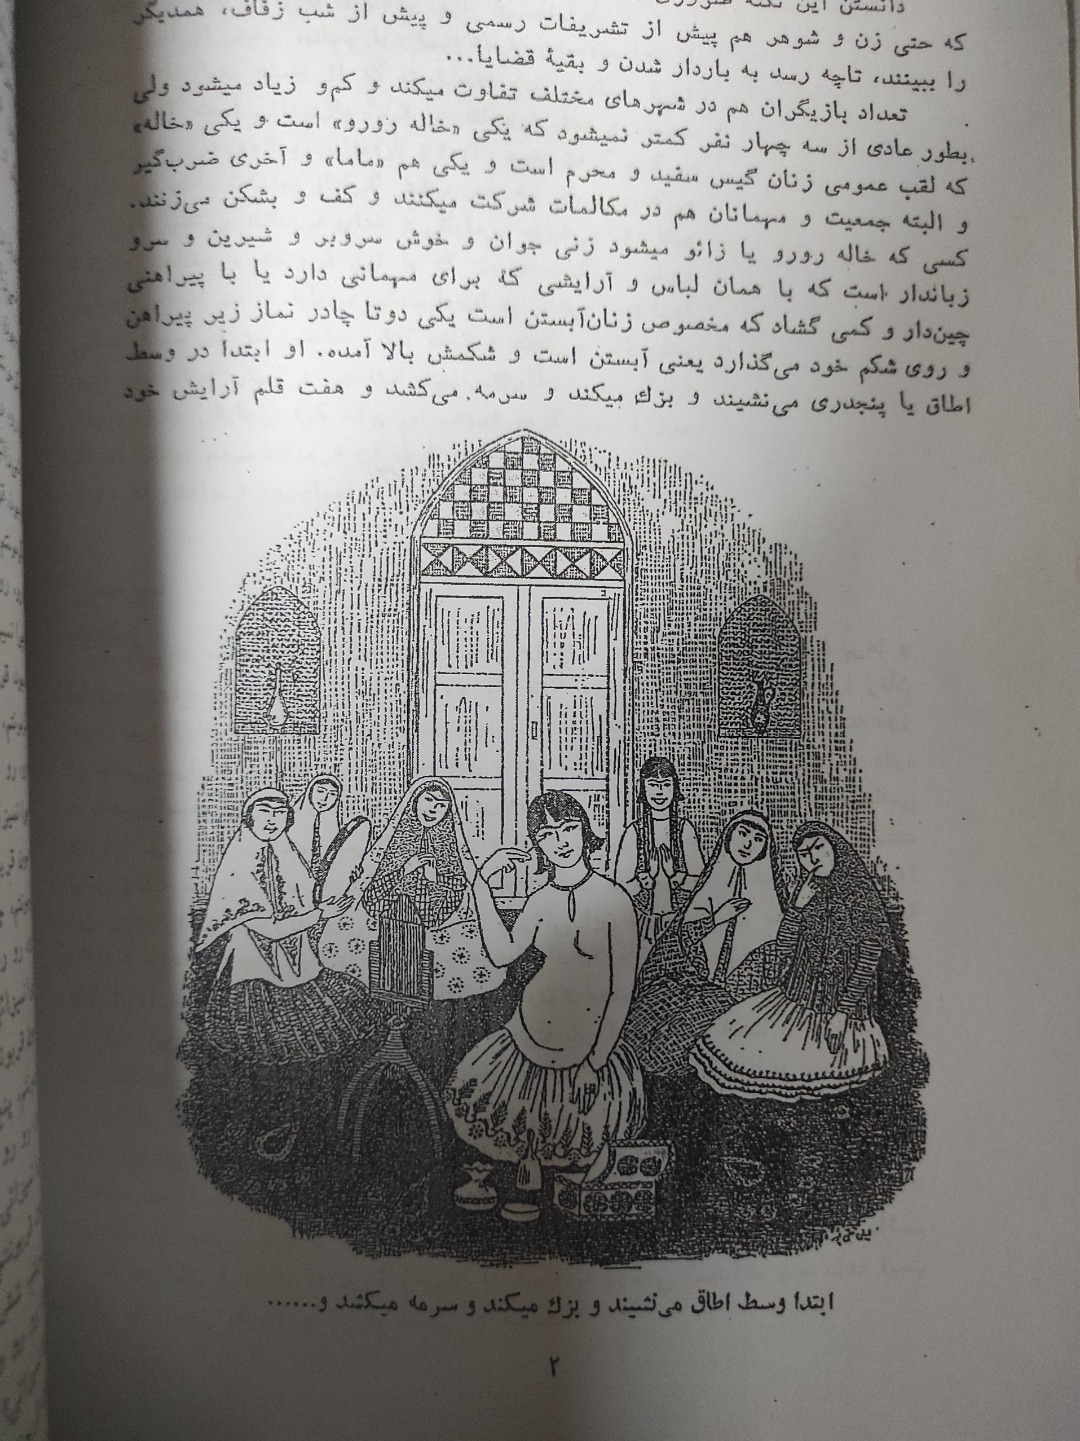 دانستن این نکته
که حتی زن و شوهر هم پیش از تشریفات رسمی و پیش از شب زفاف، همدیگر
را ببینند، تاچه رسد به باردار شدن و بقیهٔ قضایا...
تعداد بازیگران هم در شهرهای مختلف تفاوت میکند و کم‌و زیاد میشود ولی
بطور عادی از سه چهار نفر کمتر نمیشود که یکی «خاله رورو» است و یکی «خاله»
که لقب عمومی زنان گیس سفید و محرم است و یکی هم «ماما» و آخری ضرب‌گیر
و البته جمعیت و مهمانان هم در مکالمات شرکت میکنند و کف و بشکن می‌زنند.
کسی که خاله رورو یا زائو میشود زنی جوان و خوش سروبر و شیرین و سرو
زباندار است که با همان لباس و آرایشی که برای مهمانی دارد یا با پیراهنی
چین‌دار و کمی گشاد که مخصوص زنان‌آبستن است یکی دوتا چادر نماز زیر پیراهن
و روی شکم خود می‌گذارد یعنی آبستن است و شکمش بالا آمده. او ابتدا در وسط
اطاق یا پنجدری می‌نشیند و بزك میکند و سرمه می‌کشد و هفت قلم آرایش خود
ابتدا وسط اطاق می‌نشیند و بزك میکند و سرمه میکشد و......
۲